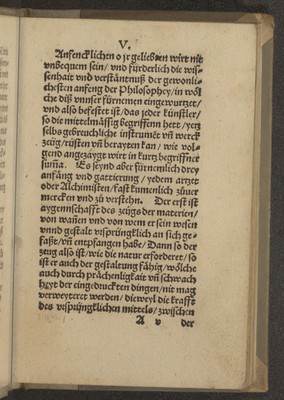 V.
Ansencklichen o jr geliebten wirt nit
vnbequem sein/ vnd fürderlich die wis-
senhait vnd verstäntnuß der gewonli-
chesten anfeng der Philosophey/ in wöl
che diß vnnser fürnemen eingewurtzet/
vnd also befestet ist/ das jeder künstler/
so die mittelmässig begriffenn hett/ yetz
selbs gebreuchliche instrumēt vñ werck
zeüg/ rüsten vñ berayten kan/ wie vol-
gend angezaygt wirt in kurtz begriffner
sum̃a. Es seynd aber fürnemlich drey
anfäng vnd gattierung/ yedem artzet
oder Alchimisten/ fast kumenlich zůuer
mercken vnd zů verstehn. Der erst ist
aygennschafft des zeügs der materien/
von wañen vnd von wem er sein wesen
vnnd gestalt vrsprünglich an sich ge-
faßt/ vñ entpfangen habe/ Dann so der
zeug also ist/ wie die natur erforderet/ so
ist er auch der gestaltung fähig/ wölche
auch durch prächenligkait vñ schwach
hayt der eingedruckten dingen/ nit mag
verweyteret werden/ dieweyl die krafft
des vrsprünglichen mittels/ zwischen
A v der